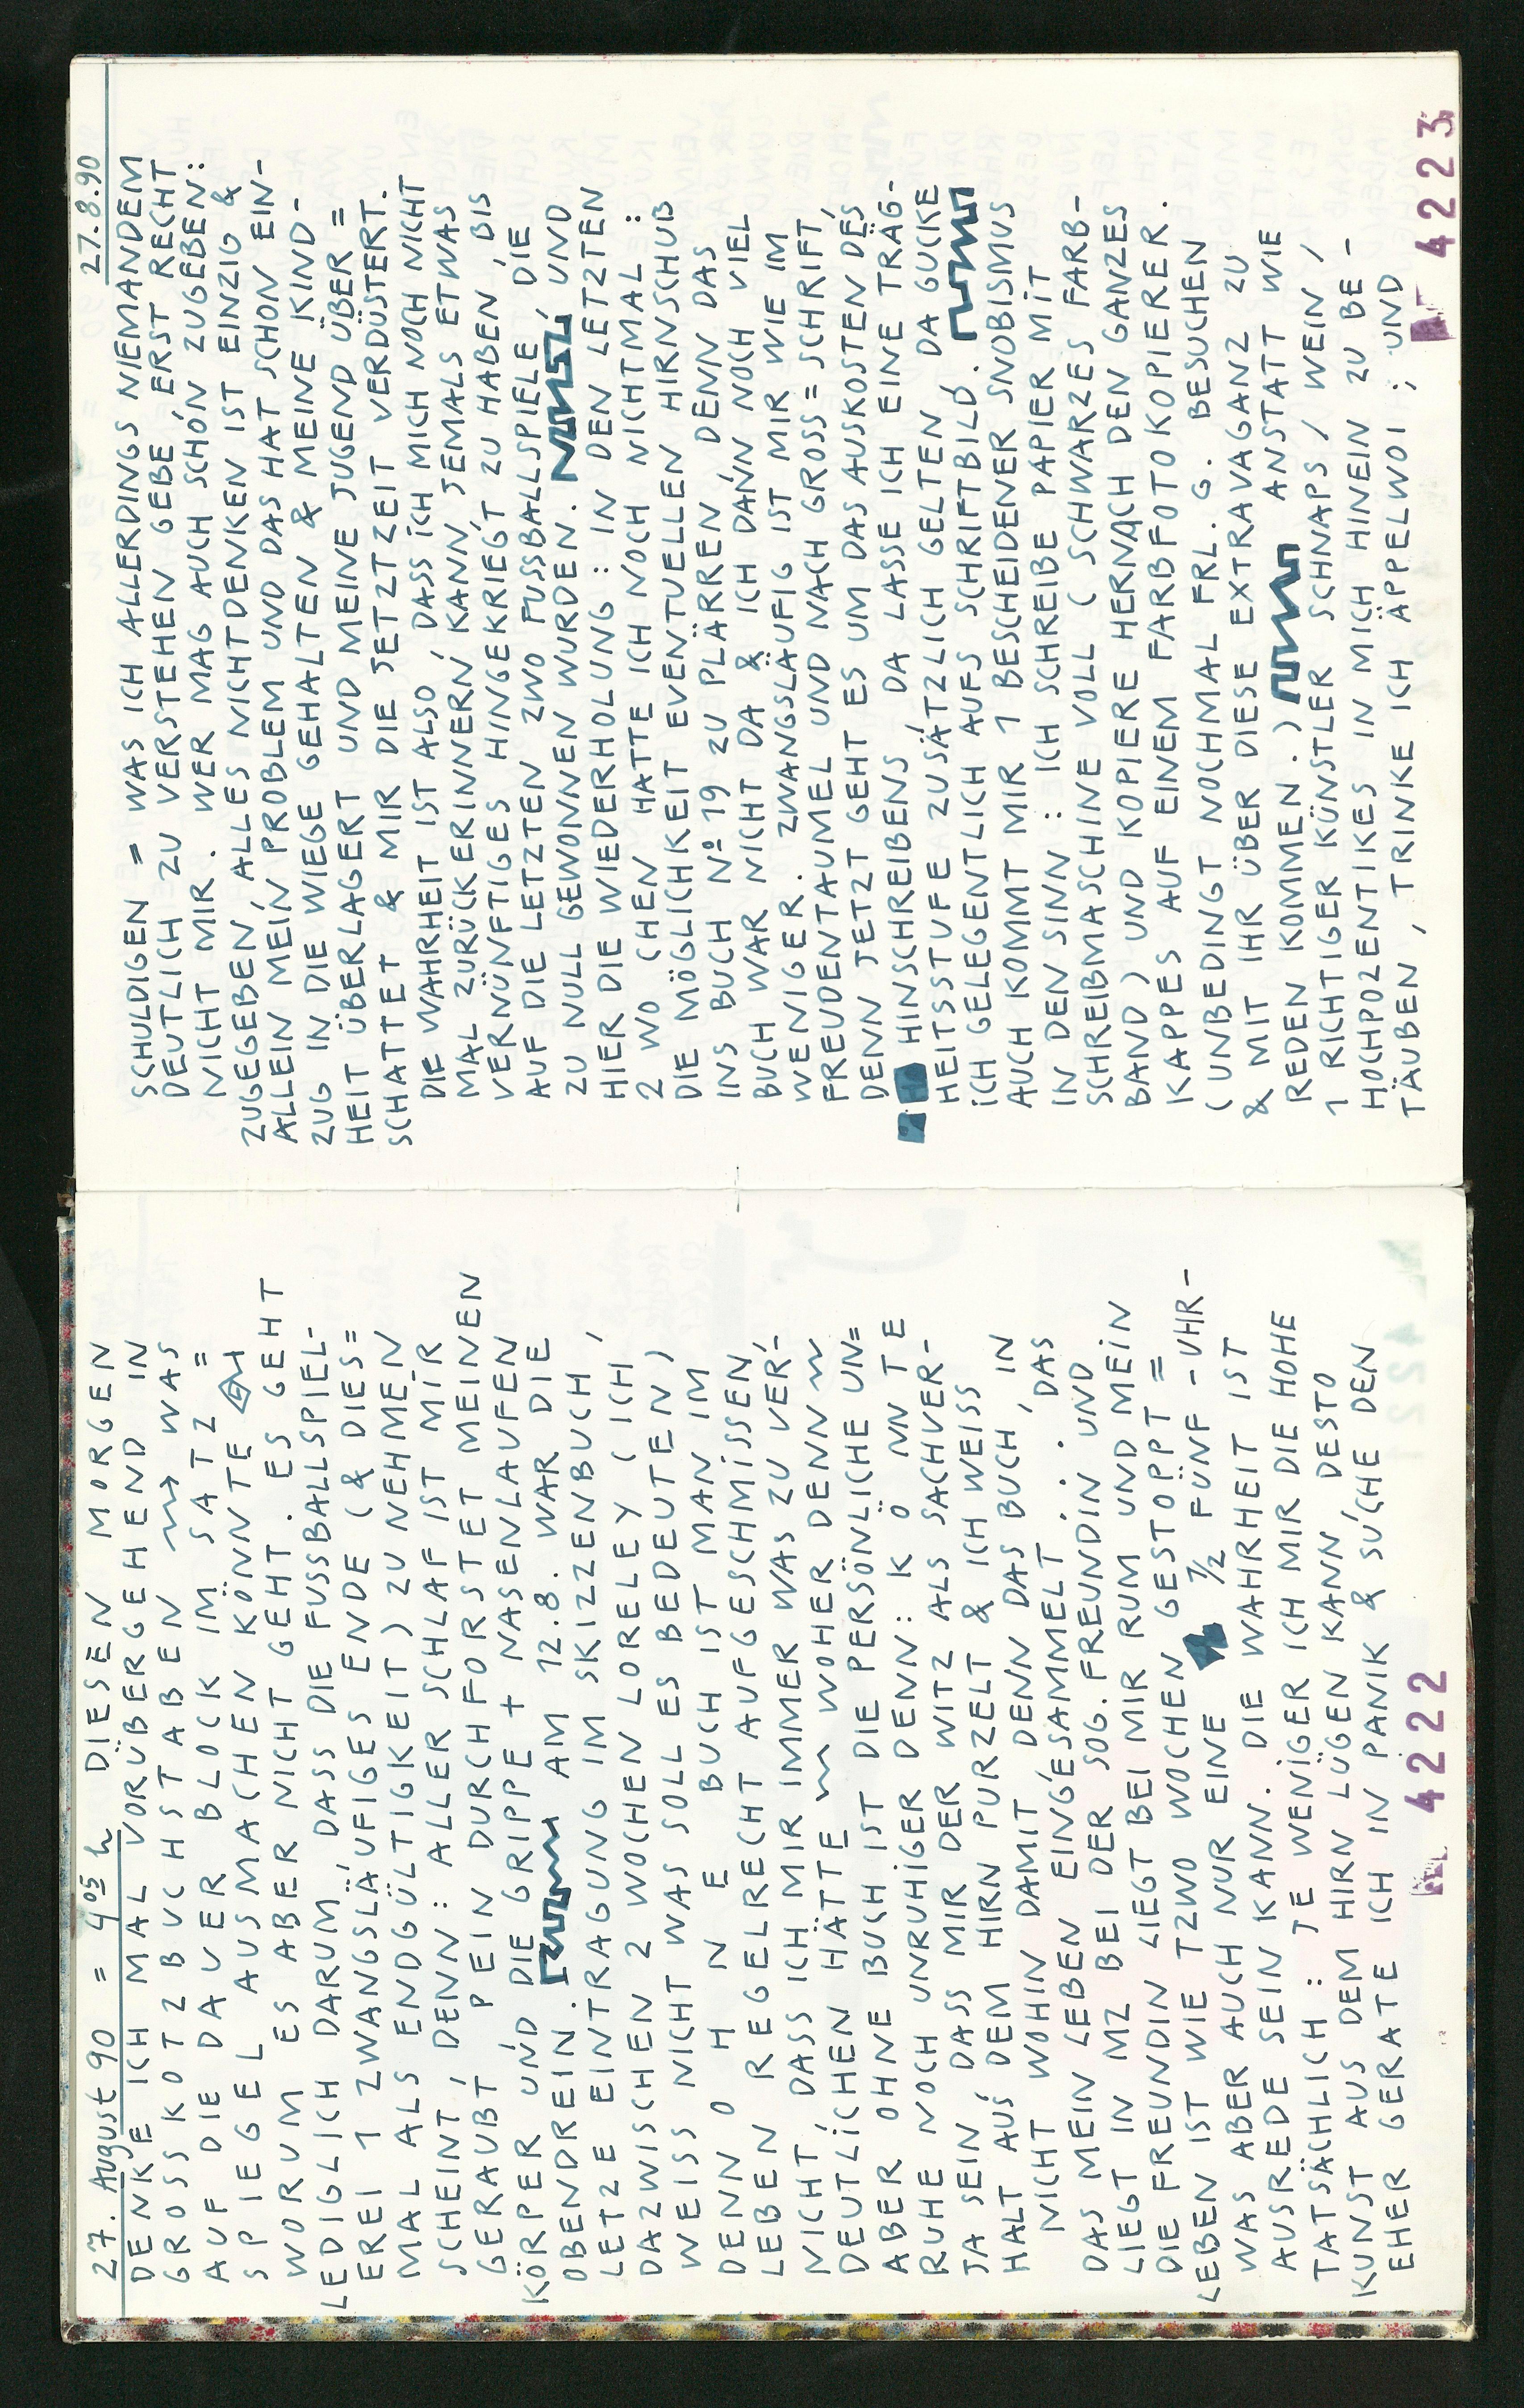 27. August 90 = 4 05 h DIESEN MORGEN
DENKE ICH MAL VORÜBERGEHEND IN
GROSSKOTZBUCHSTABEN WAS
AUF DIE DAUER BLOCK IM SATZ =
SPIEGEL AUSMACHEN KÖNNTE
WORUM ES ABER NICHT GEHT. ES GEHT
LEDIGLICH DARUM DASS DIE FUSSBALLSPIEL-
EREI 1 ZWANGSLÄUFIGES ENDE (& DIES =
MAL ALS ENDGÜLTIGKEIT) ZU NEHMEN
SCHEINT, DENN: ALLER SCHLAF IST MIR
GERAUBT PEIN DURCHFORSTET MEINEN
KÖRPER UND DIE GRIPPE + NASENLAUFEN
OBENDREIN. AM 12.8. WAR DIE
LETZE EINTRAGUNG IM SKIZZENBUCH,
DAZWISCHEN 2 WOCHEN LORELEY (ICH
WEISS NICHT WAS SOLL ES BEDEUTEN)
DENN OHNE BUCH IST MAN IM
LEBEN REGELRECHT AUFGESCHMISSEN
NICHT, DASS ICH MIR IMMER WAS ZU VER-
DEUTLICHEN HÄTTE WOHER DENN
ABER OHNE BUCH IST DIE PERSÖNLICHE UN=
RUHE NOCH UNRUHIGER DENN: KÖNNTE
JA SEIN, DASS MIR DER WITZ ALS SACHVER-
HALT AUS DEM HIRN PURZELT & ICH WEISS
NICHT WOHIN DAMIT DENN DAS BUCH, IN
DAS MEIN LEBEN EINGESAMMELT.., DAS
LIEGT IN MZ BEI DER SOG. FREUNDIN UND
DIE FREUNDIN LIEGT BEI MIR RUM UND MEIN
LEBEN IST WIE TZWO WOCHEN GESTOPPT =
WAS ABER AUCH NUR EINE 1/2 FÜNF-UHR-
AUSREDE SEIN KANN. DIE WAHRHEIT IST
TATSÄCHLICH: JE WENIGER ICH MIR DIE HOHE
KUNST AUS DEM HIRN LÜGEN KANN DESTO
EHER GERATE ICH IN PANIK & SUCHE DEN
4222
27.8.90
SCHULDIGEN = WAS ICH ALLERDINGS NIEMANDEM
DEUTLICH ZU VERSTEHEN GEBE, ERST RECHT
NICHT MIR. WER MAG AUCH SCHON ZUGEBEN:
ZUGEGEBEN, ALLES NICHTDENKEN IST EINZIG &
ALLEIN MEIN PROBLEM UND DAS HAT SCHON EIN-
ZUG IN DIE WIEGE GEHALTEN & MEINE KIND-
HEIT ÜBERLAGERT UND MEINE JUGEND ÜBER =
SCHATTET & MIR DIE JETZTZEIT VERDÜSTERT.
DIE WAHRHEIT IST ALSO, DASS ICH MICH NOCH NICHT
MAL ZURÜCKERINNERN KANN, JEMALS ETWAS
VERNÜNFTIGES HINGEKRIEGT ZU HABEN, BIS
AUF DIE LETZTEN ZWO FUSSBALLSPIELE, DIE
ZU NULL GEWONNEN WURDEN. UND
HIER DIE WIEDERHOLUNG: IN DEN LETZTEN
2 WOCHEN HATTE ICH NOCH NICHTMAL:
DIE MÖGLICHKEIT EVENTUELLEN HIRNSCHUB
INS BUCH Nº 19 ZU PLÄRREN, DENN DAS
BUCH WAR NICHT DA & ICH DANN NOCH VIEL
WENIGER. ZWANGSLÄUFIG IST MIR WIE IM
FREUDENTAUMEL UND NACH GROSS=SCHRIFT,
DENN JETZT GEHT ES UM DAS AUSKOSTEN DES
HINSCHREIBENS, DA LASSE ICH EINE TRÄG-
HEITSSTUFE ZUSÄTZLICH GELTEN DA GUCKE
ICH GELEGENTLICH AUFS SCHRIFTBILD.
AUCH KOMMT MIR 1 BESCHEIDENER SNOBISMUS
IN DEN SINN: ICH SCHREIBE PAPIER MIT
SCHREIBMASCHINE VOLL (SCHWARZES FARB-
BAND) UND KOPIERE HERNACH DEN GANZES
KAPPES AUF EINEM FARBFOTOKOPIERER.
(UNBEDINGT NOCHMAL FRL. G. BESUCHEN
& MIT IHR ÜBER DIESE EXTRAVAGANZ ZU
REDEN KOMMEN.) ANSTATT WIE
1 RICHTIGER KÜNSTLER SCHNAPS / WEIN /
HOCHPOZENTIKES IN MICH HINEIN ZU BE-
TÄUBEN, TRINKE ICH ÄPPELWOI; UND
4223